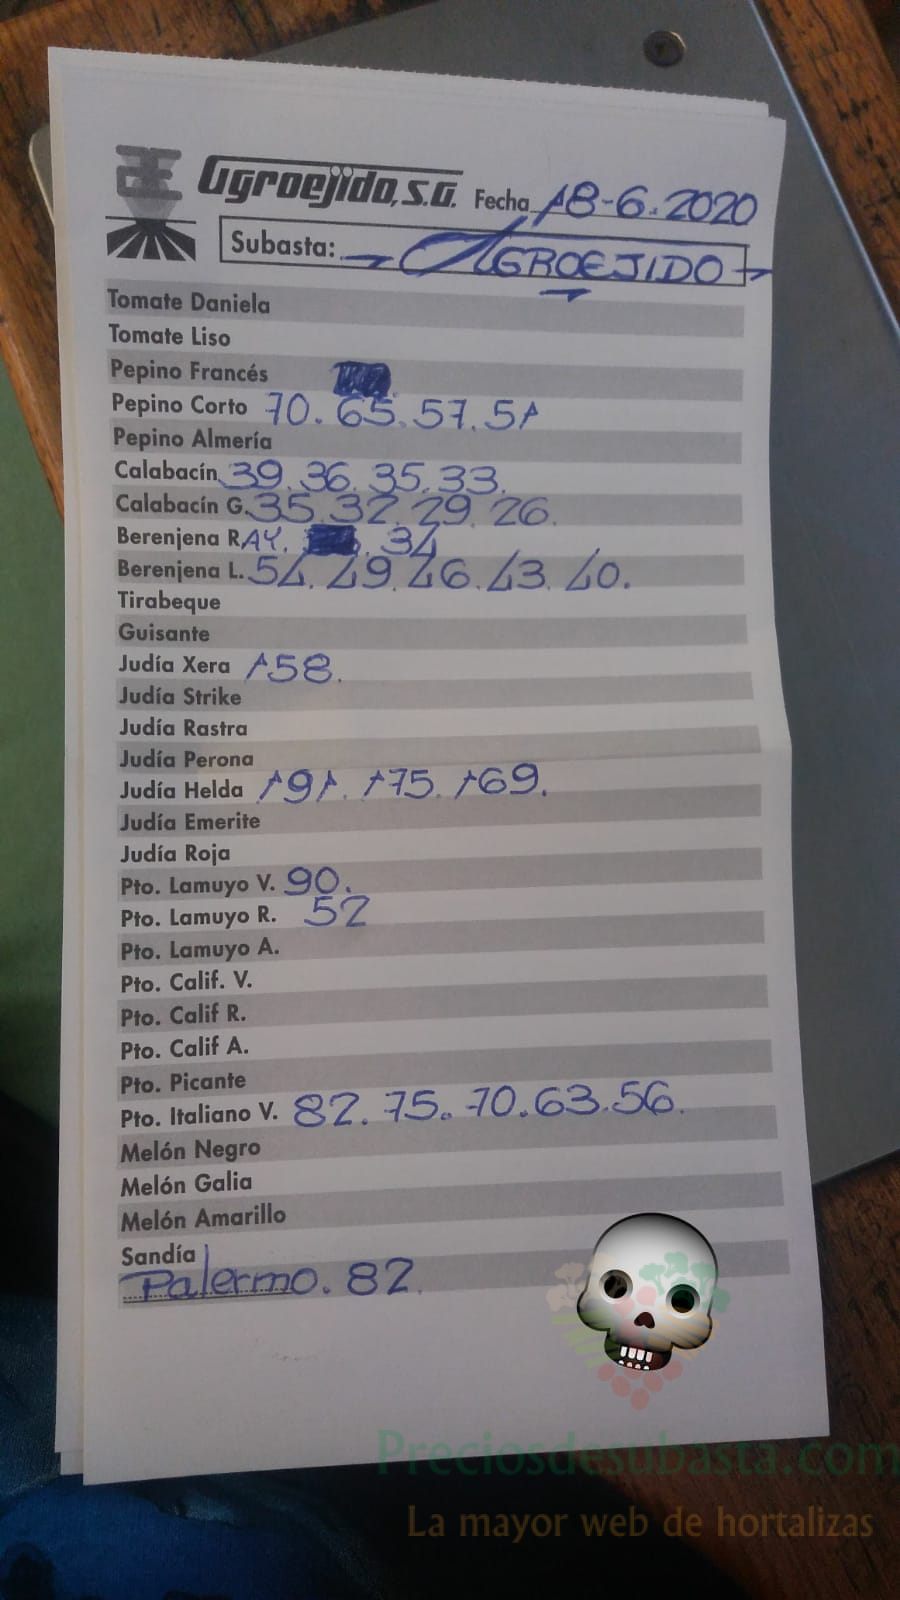 Agroejido, S.A. Fecha 18-6.2020
Subasta: AGROEJIDO
Tomate Daniela
Tomate Liso
Pepino Francés
Pepino Corto 70. 65. 57. 51
Pepino Almería
Calabacín 39. 36. 35. 33.
Calabacín G. 35. 32. 29. 26.
Berenjena RAY. . 34
Berenjena L. 54. 49. 46. 43. 40.
Tirabeque
Guisante
Judía Xera 158.
Judía Strike
Judía Rastra
Judía Perona
Judía Helda 191. 175. 169.
Judía Emerite
Judía Roja
Pto. Lamuyo V. 90.
Pto. Lamuyo R. 52
Pto. Lamuyo A.
Pto. Calif. V.
Pto. Calif R.
Pto. Calif A.
Pto. Picante
Pto. Italiano V. 82. 75. 70. 63. 56.
Melón Negro
Melón Galia
Melón Amarillo
Sandía
Palermo. 82.
Preciosdesubasta.com
La mayor web de hortalizas